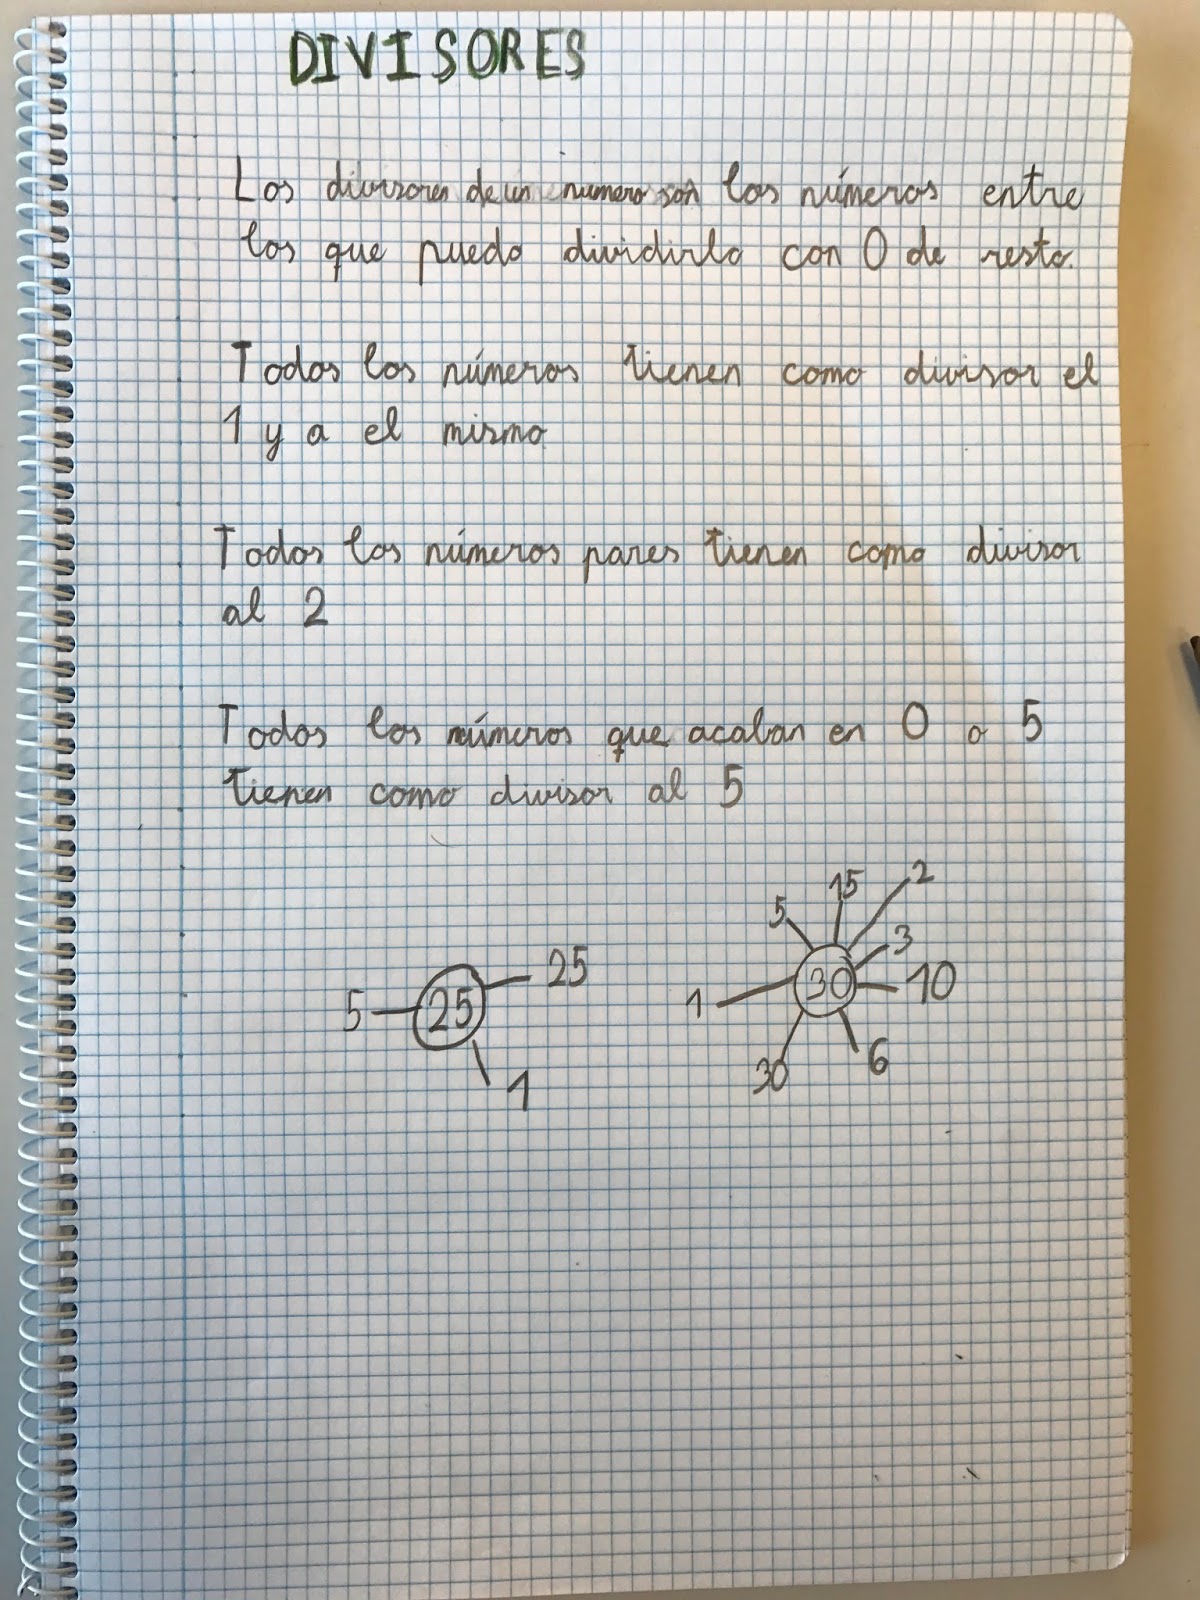 DIVISORES
Los divisores de un numero son los números entre
los que puedo dividirlo con 0 de resto.
Todos los números tienen como divisor el
1 y a el mismo
Todos los números pares tienen como divisor
al 2
Todos los números que acaban en 0 o 5
tienen como divisor al 5
5 25 25 1
5 15 2 3 10 6 30 1 30